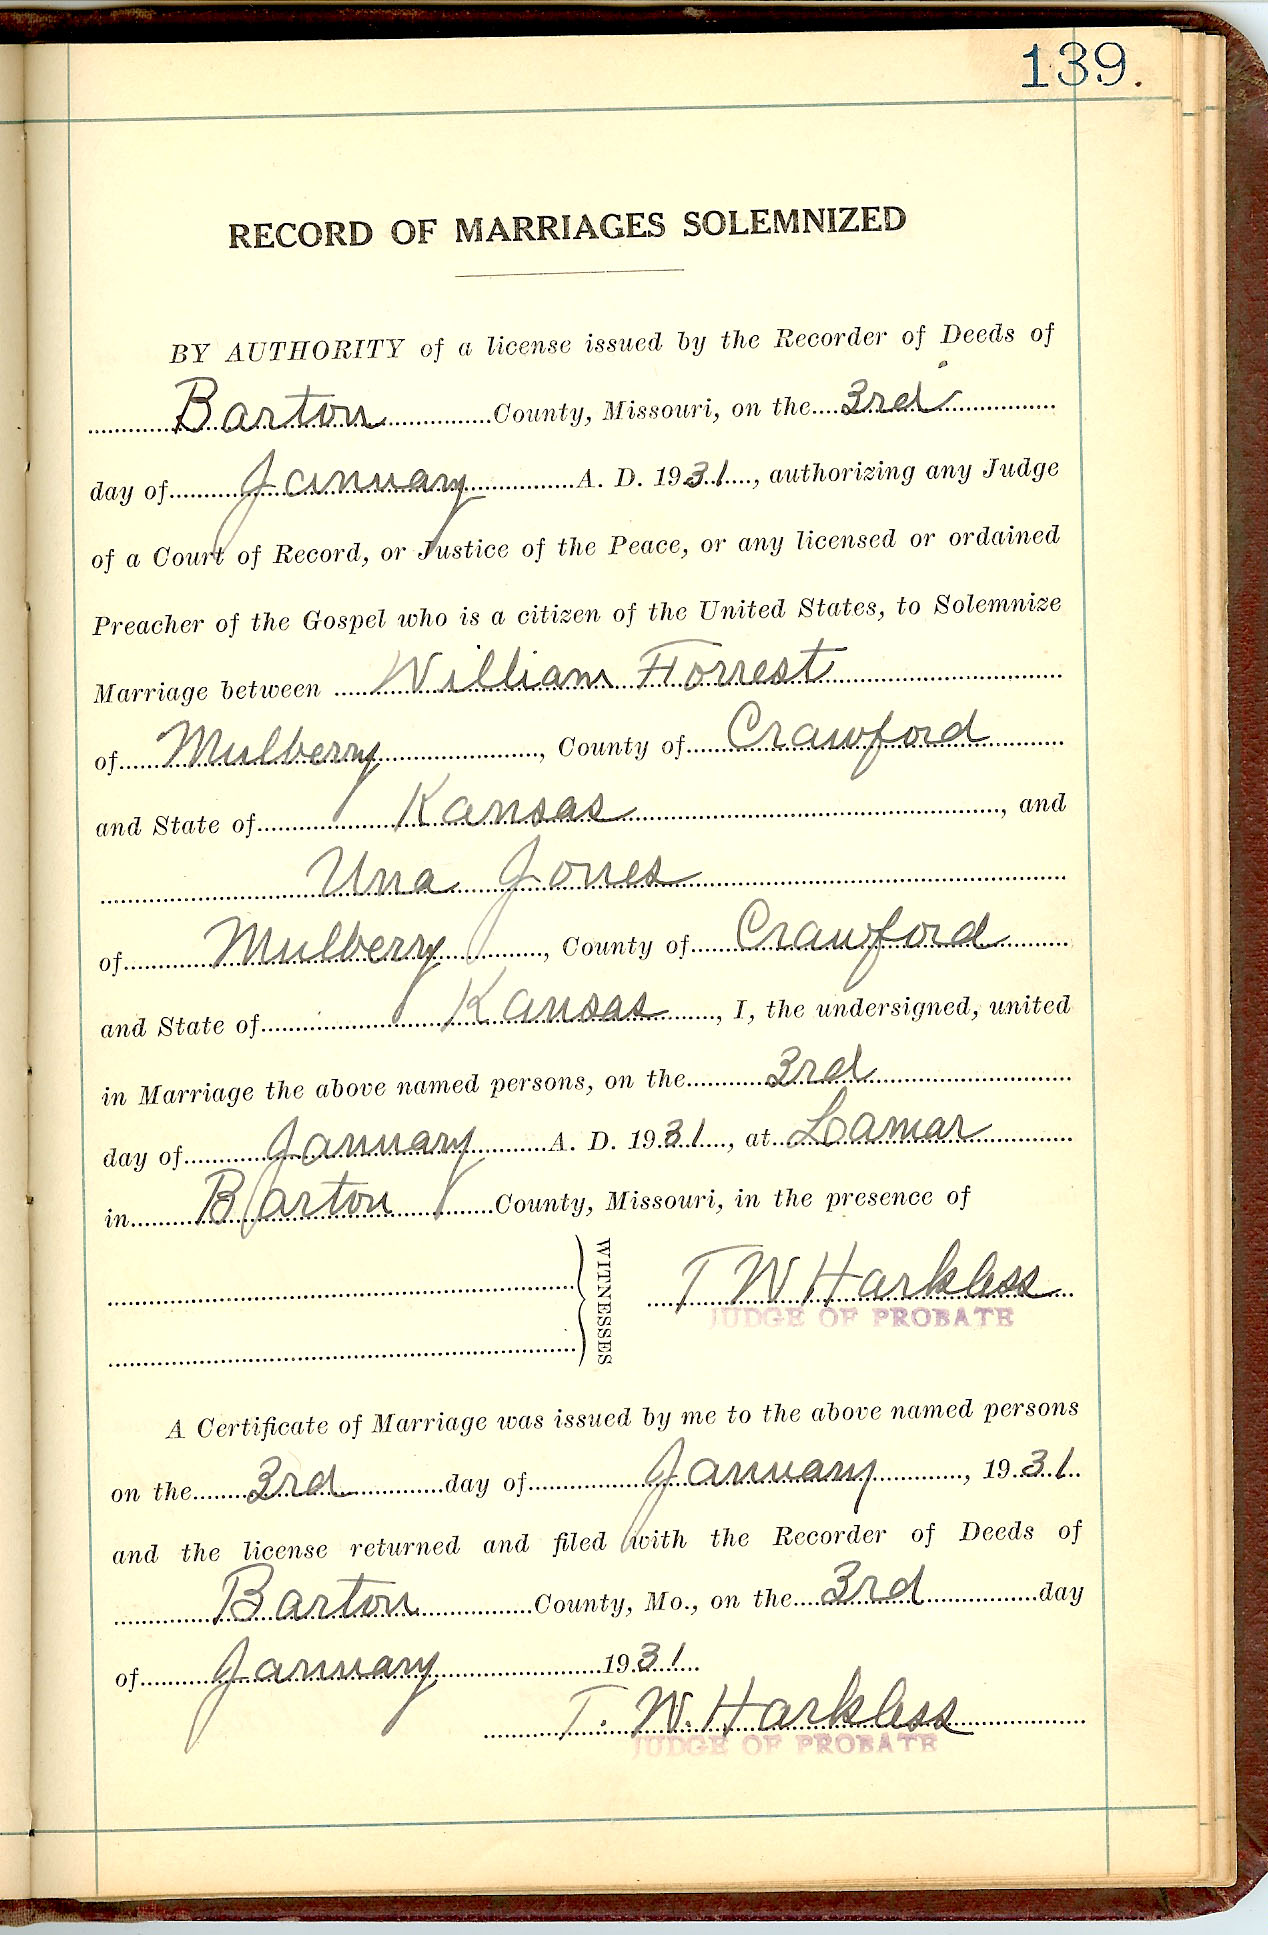 139.
RECORD OF MARRIAGES SOLEMNIZED
BY AUTHORITY of a license issued by the Recorder of Deeds of
Barton County, Missouri, on the 3rd
day of January A. D. 1931, authorizing any Judge
of a Court of Record, or Justice of the Peace, or any licensed or ordained
Preacher of the Gospel who is a citizen of the United States, to Solemnize
Marriage between William Forrest
of Mulberry, County of Crawford
and State of Kansas, and
Una Jones
of Mulberry, County of Crawford
and State of Kansas, I, the undersigned, united
in Marriage the above named persons, on the 3rd
day of January A. D. 1931, at Lamar
in Barton County, Missouri, in the presence of
WITNESSES
T W Harkless
JUDGE OF PROBATE
A Certificate of Marriage was issued by me to the above named persons
on the 3rd day of January, 1931.
and the license returned and filed with the Recorder of Deeds of
Barton County, Mo., on the 3rd day
of January 1931.
T. W. Harkless
JUDGE OF PROBATE